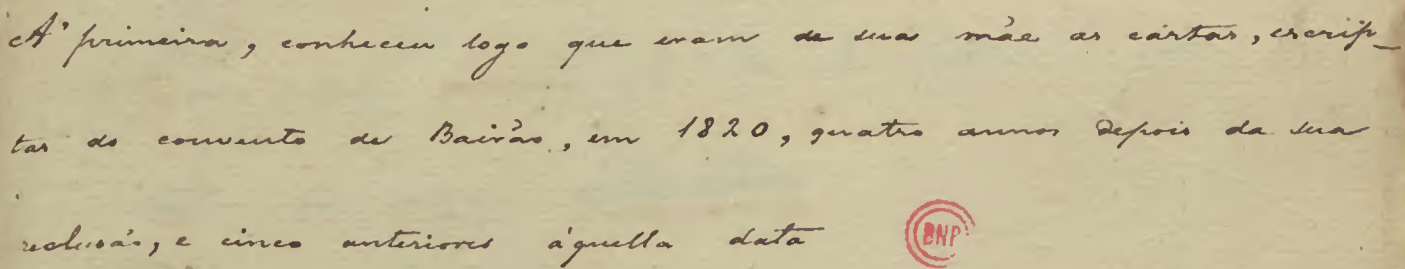 A' primeira, conheceu logo que eram de sua mãe as cartas, escrip-
tas do convento de Bairão, em 1820, quatro annos depois da sua
reclusão, e cinco anteriores áquella data
BNP